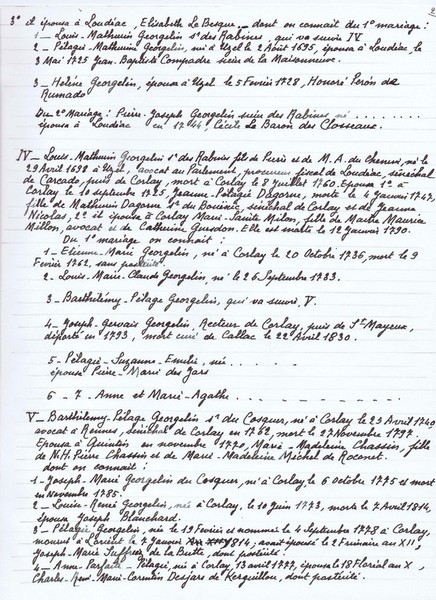 3° il épousa à Loudéac, Elisabeth Le Besque... dont on connait du 1° mariage :
1 - Louis-Mathurin Georgelin sr des Rabines, qui va suivre IV
2 - Pélagie-Mathurine Georgelin, née à Uzel le 2 Août 1695, épousa à Loudéac, le
3 Mai 1725 Jean-Baptiste Compadre sieur de la Maisonneuve.
3 - Hélène Georgelin, épousa à Uzel le 5 Février 1728, Honoré Péron de
Rumado
Du 2° Mariage : Pierre-Joseph Georgelin sieur des Rabines né
épousa à Loudéac en 1744, Cécile Le Baron des Closseaux.
IV - Louis-Mathurin Georgelin sr des Rabines fils de Pierre et de M. A. du Chemin, né le
29 Avril 1698 à Uzel, avocat au Parlement, procureur fiscal de Loudéac, sénéchal
de Carcado, puis de Corlay, mort à Corlay le 8 Juillet 1760. Epousa 1° à
Corlay le 10 septembre 1725, Jeanne-Pélagie Dagorne, morte le 4 Janvier 1747,
fille de Mathurin Dagorne sr du sénéchal de Corlay et de Jeanne
Nicolas, 2° il épousa à Corlay Marie-Sainte Milon, fille de Maître Maurice
Millon, avocat et de Catherine Guesdon. Elle est morte le 12 Janvier 1790.
Du 1° mariage on connait :
1 - Etienne-Marie Georgelin, né à Corlay le 20 Octobre 1736, mort le 9
Février 1762, sans postérité.
2 - Louis-Marie-Claude Georgelin, né le 26 Septembre 1733.
3 - Barthélémy-Pélage Georgelin, qui va suivre V.
4 - Joseph-Gervais Georgelin, Recteur de Corlay, puis de St Mayeux,
déporté en 1793, mort curé de Callac le 22 Avril 1830.
5 - Pélagie-Suzanne-Emilie, née . . . . . .
épousa Pierre-Marie des Jars
6 - 7 - Anne et Marie-Agathe . . .
V - Barthélemy-Pélage Georgelin sr du Cosquer, né à Corlay le 23 Avril 1740
avocat à Rennes, sénéchal de Corlay en 1762, mort le 27 Novembre 1797.
Epousa à Quintin en novembre 1770, Marie-Madeleine Chassin, fille
de N.H. Pierre Chassin et de Marie-Madeleine Michel de Roconet.
dont on connait :
1 - Joseph-Marie Georgelin du Cosquer, né à Corlay, le 6 octobre 1775 et mort
en Novembre 1785.
2 - Louise-Renée Georgelin, née à Corlay, le 10 Juin 1773, morte le 7 Avril 1814,
épousa Joseph Blanchard.
3 - Pélagie Georgelin, née le 19 Février et nommée le 4 Septembre 1778 à Corlay,
mourut à Lorient le 7 Janvier 1814, avait épousé le 2 Frimaire an XII,
Joseph-Marie Suffren de la Butte, dont postérité.
4 - Anne-Parfaite-Pélagie, née à Corlay, 13 avril 1777, épousa le 18 Floréal an X,
Charles-René-Marie-Corentin Desjars de Kerguillou, dont postérité.